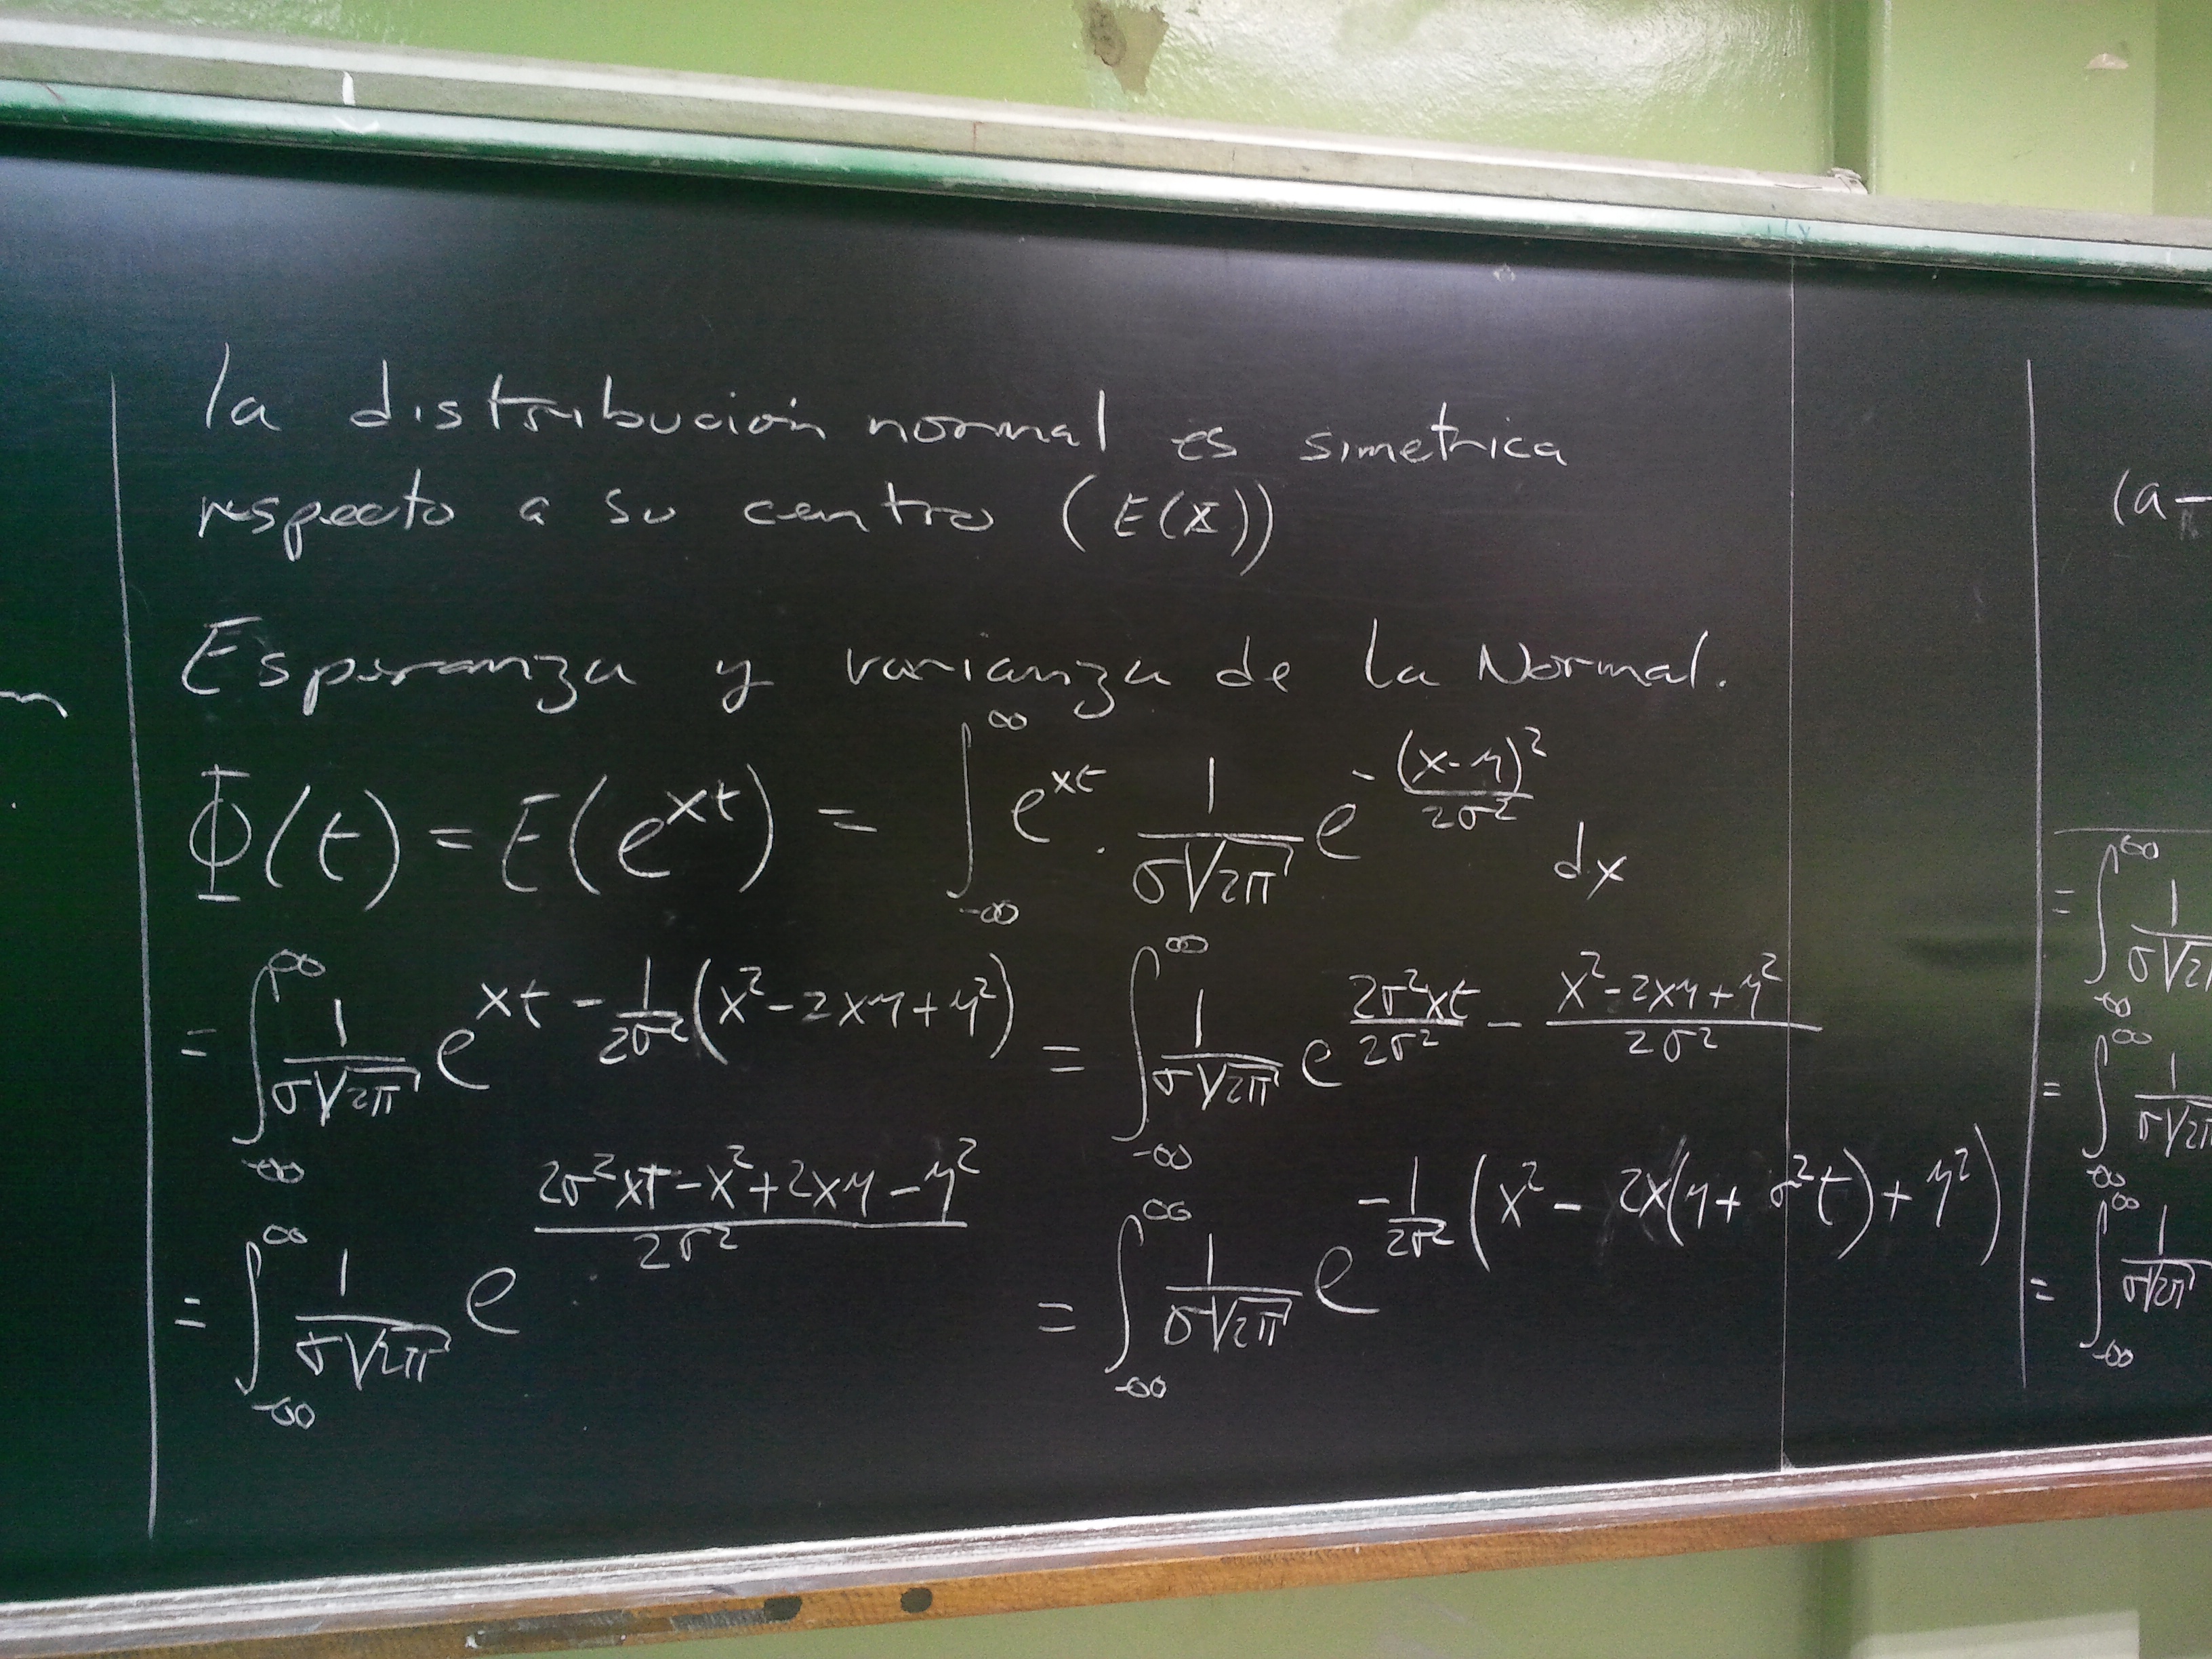 la distribución normal es simetrica
respecto a su centro (E(X))
Esperanza y varianza de la Normal.
Φ(t) = E(e^{xt}) = ∫_{-∞}^{∞} e^{xt} · \frac{1}{σ√{2π}} e^{-\frac{(x-μ)^2}{2σ^2}} dx
= ∫_{-∞}^{∞} \frac{1}{σ√{2π}} e^{xt - \frac{1}{2σ^2}(x^2 - 2xμ + μ^2)} = ∫_{-∞}^{∞} \frac{1}{σ√{2π}} e^{\frac{2σ^2xt}{2σ^2} - \frac{x^2 - 2xμ + μ^2}{2σ^2}}
= ∫_{-∞}^{∞} \frac{1}{σ√{2π}} e^{\frac{2σ^2xt - x^2 + 2xμ - μ^2}{2σ^2}} = ∫_{-∞}^{∞} \frac{1}{σ√{2π}} e^{-\frac{1}{2σ^2}(x^2 - 2x(μ + σ^2t) + μ^2)}
(a-
= ∫_{-∞}^{∞} \frac{1}{σ√{2π}}
= ∫_{-∞}^{∞} \frac{1}{σ√{2π}}
= ∫_{-∞}^{∞} \frac{1}{σ√{2π}}